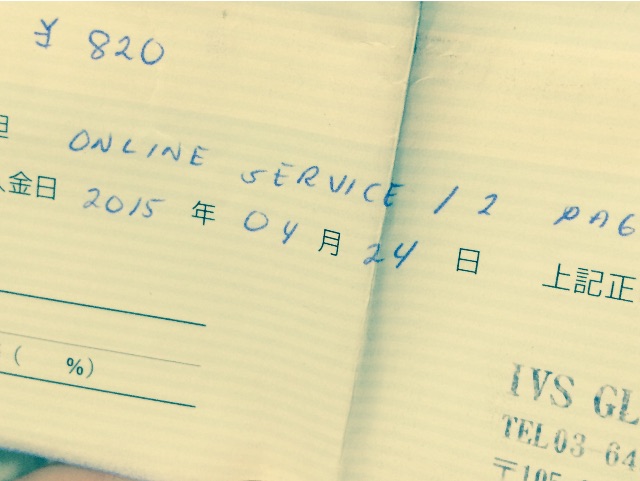 ¥ 820
ONLINE SERVICE / 2 PAG
入金日 2015 年 04 月 24 日 上記正
( %)
IVS GL
TEL 03 64
〒105